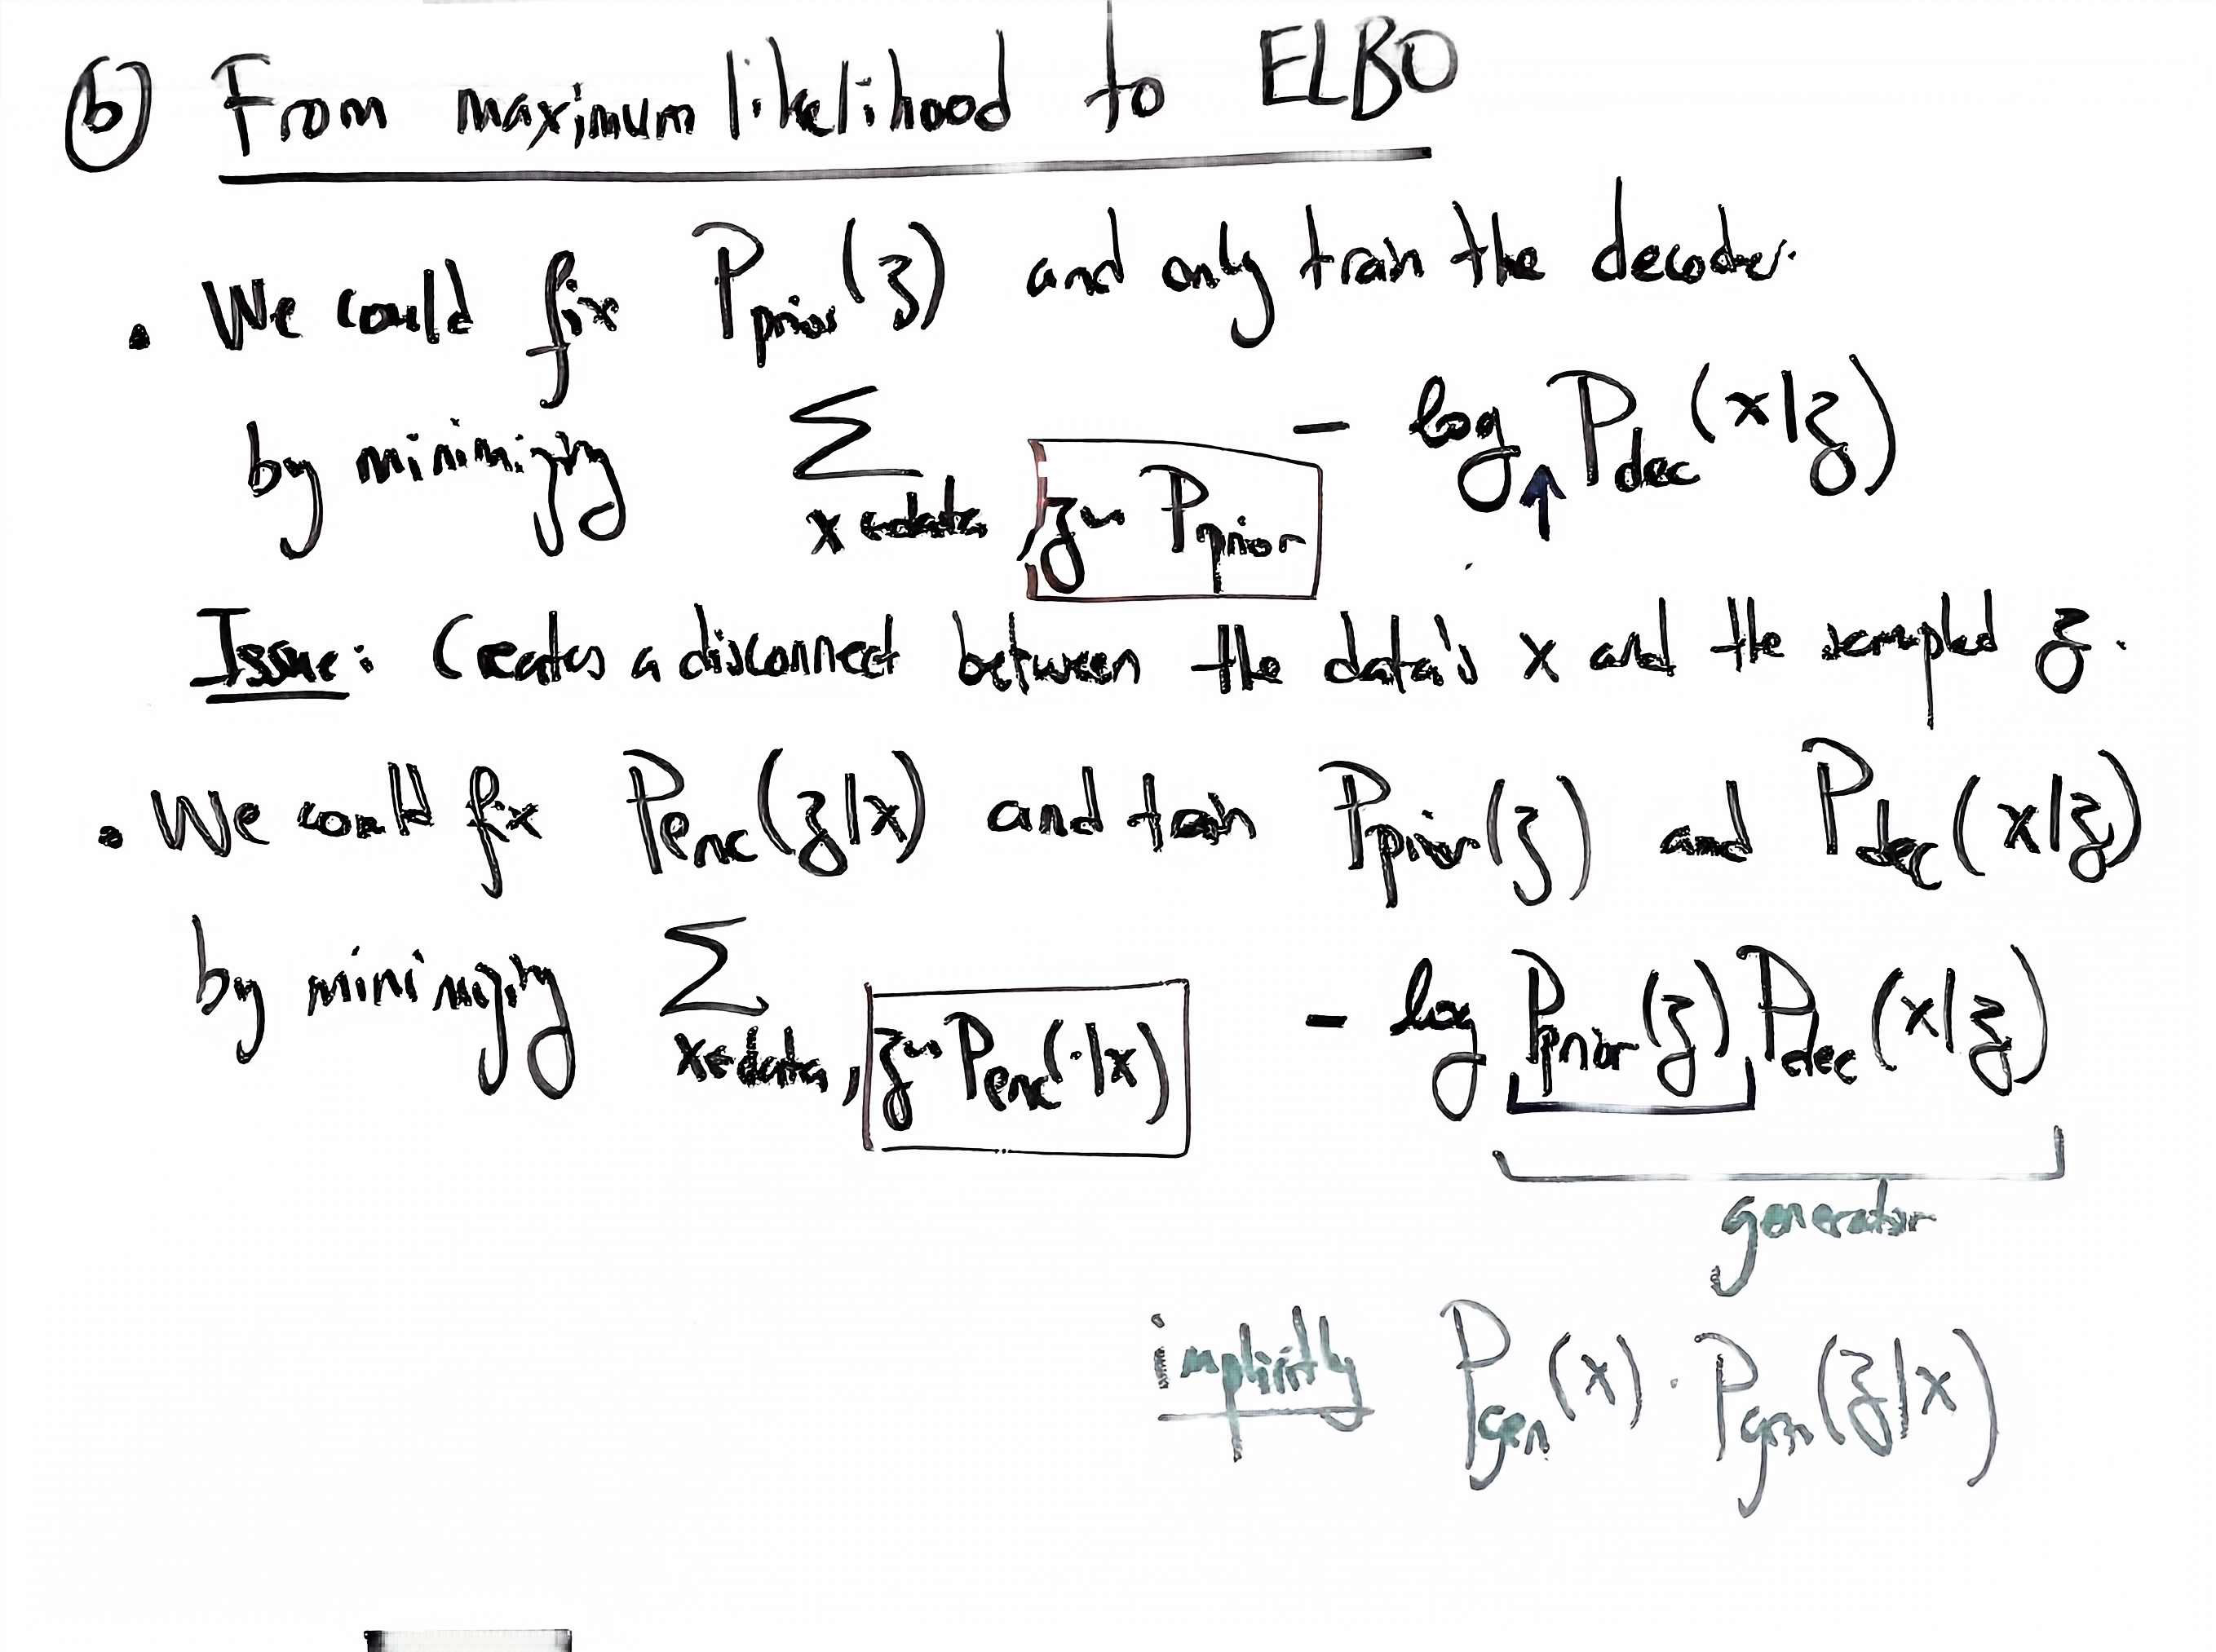 (b) From maximum likelihood to ELBO
• We could fix P_prior(z) and only train the decoder.
by minimizing Σ_{x∈data, z∼P_prior} − log P_dec(x|z)
↑
Issue: Creates a disconnect between the data's x and the sampled z.
• We could fix P_enc(z|x) and train P_prior(z) and P_dec(x|z)
by minimizing Σ_{x∈data, z∼P_enc(·|x)} − log P_prior(z) P_dec(x|z)
generator
implicitly P_gen(x) · P_gen(z|x)